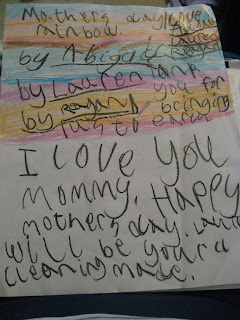 Mothers day love
rainbow.
by Abigail
by Lauren Tank
by reagan you for
bringing
us to earth
I love you
mommy. Happy
mothers day. Lauren
will be your
cleaning made.